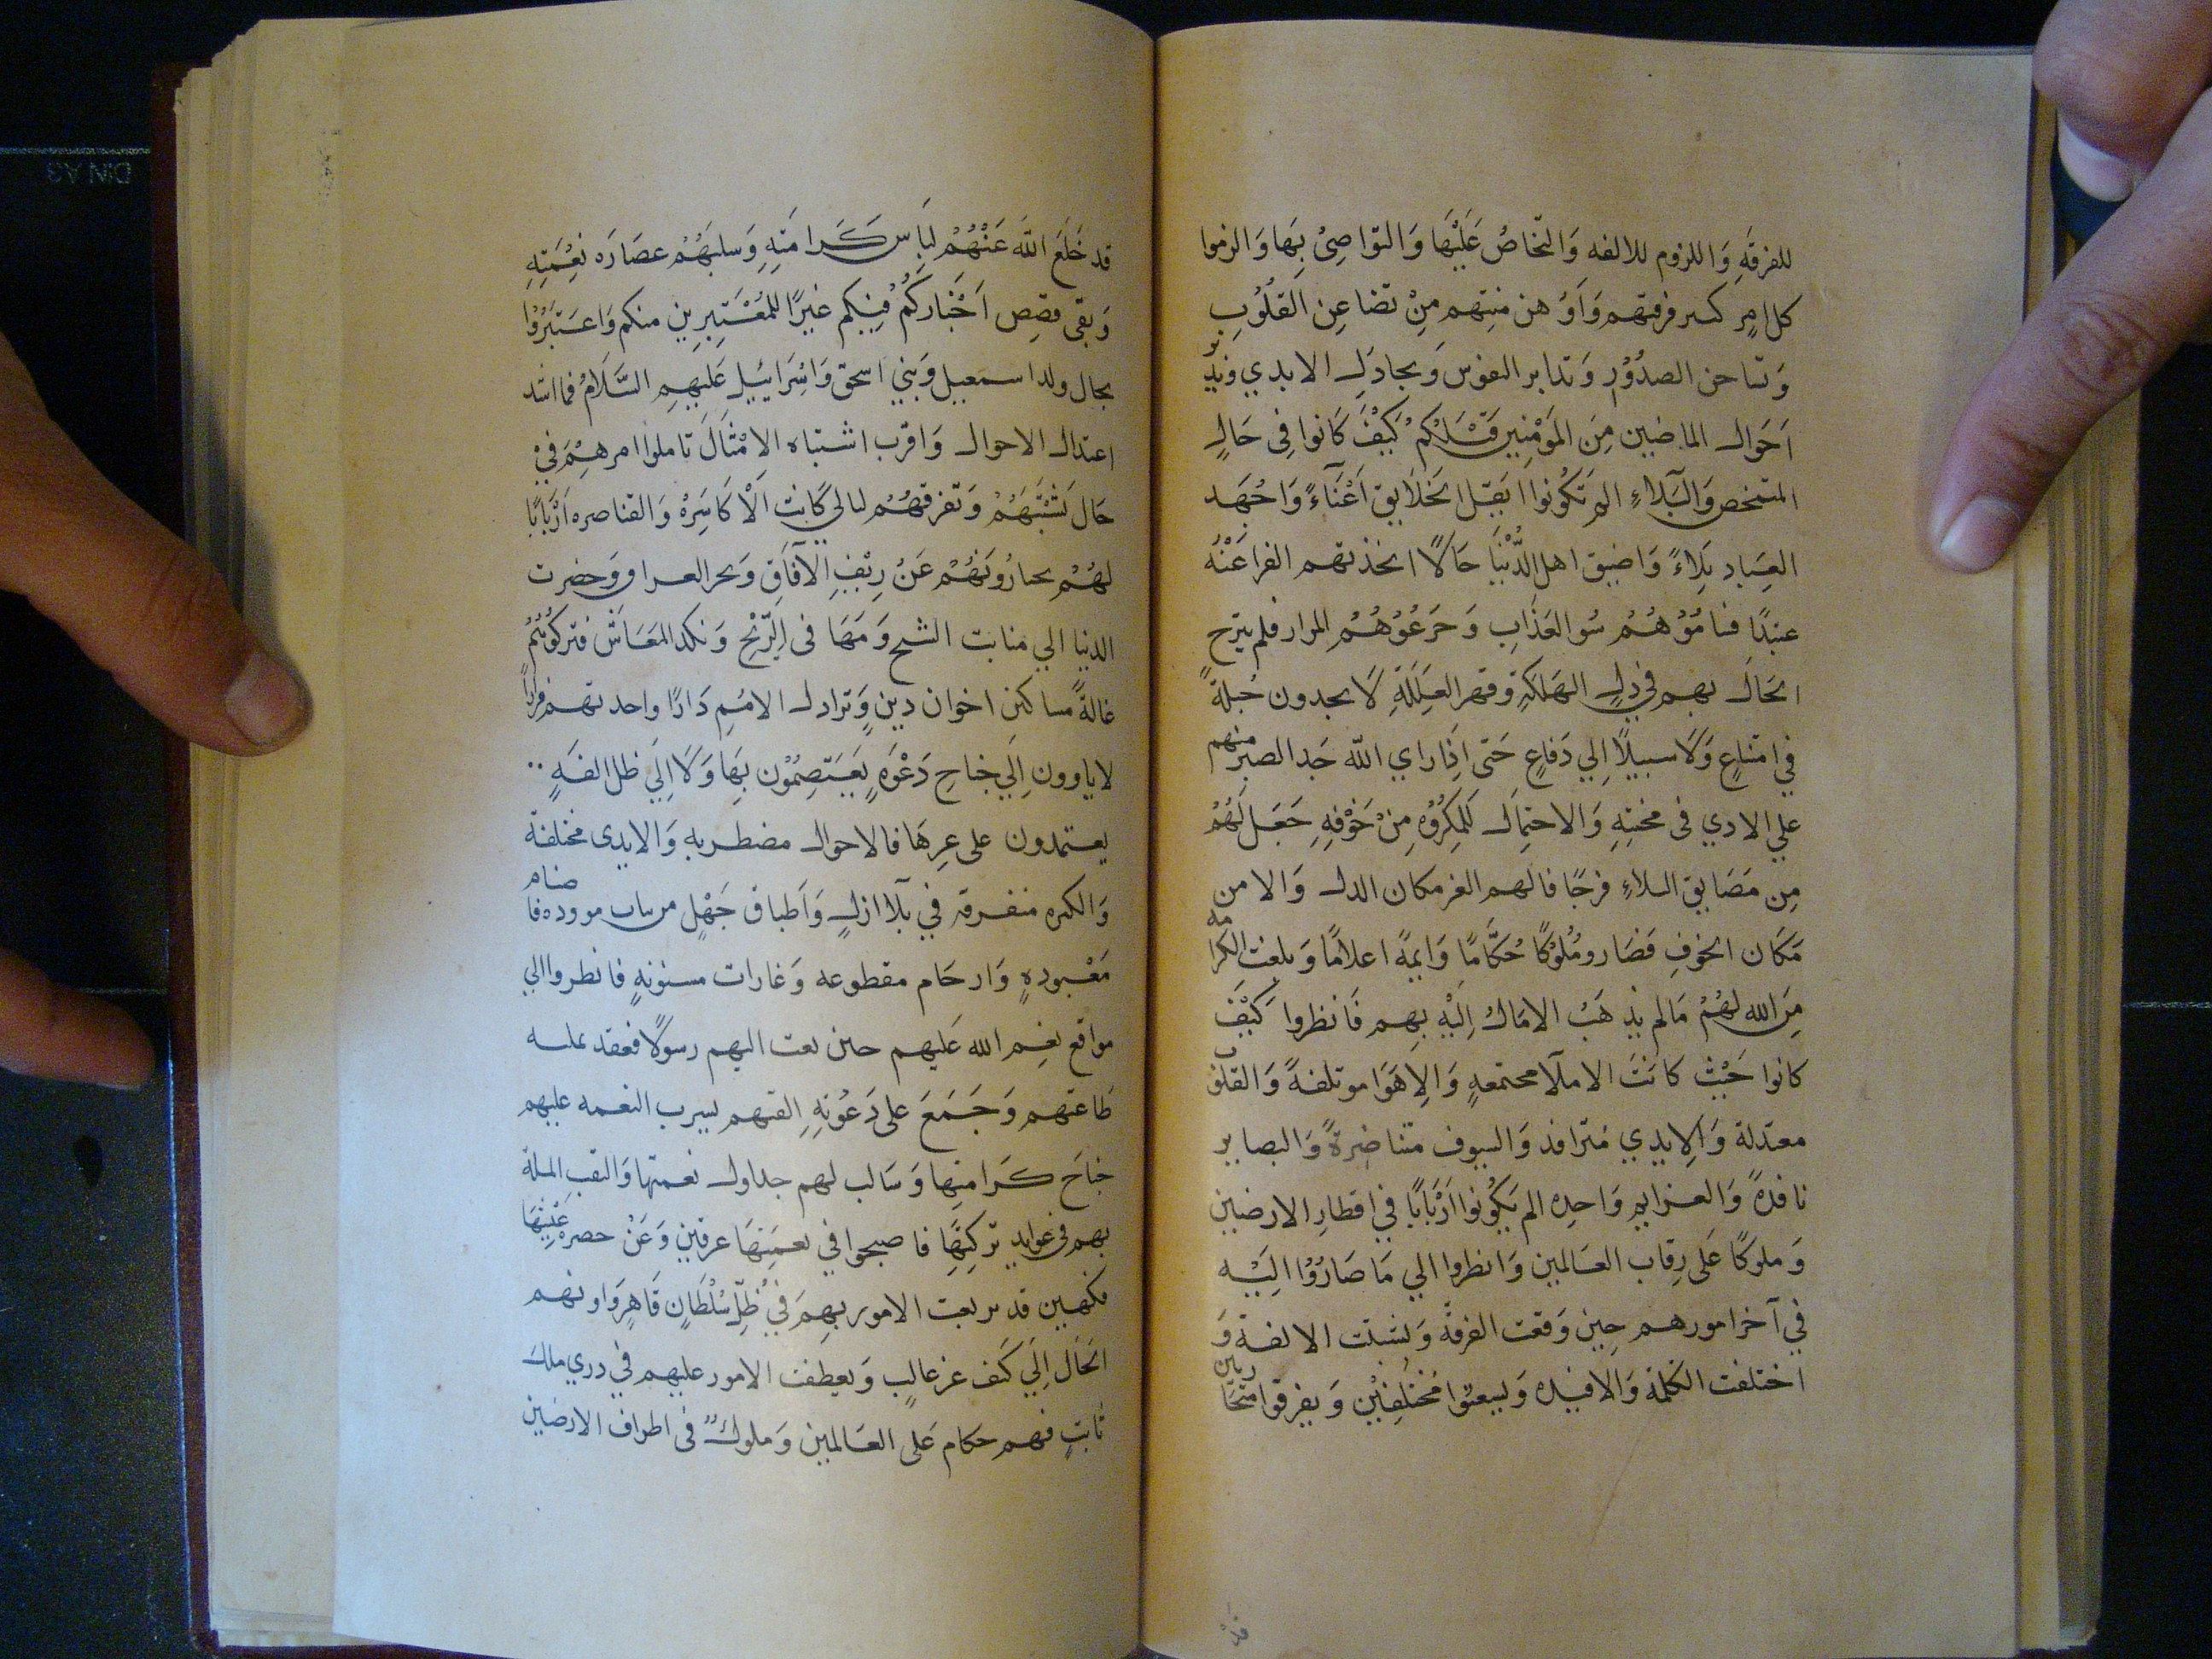 للفرقه واللزوم للالفه والتخاض عليها والتواصي بها والزموا
كل امر كسر فرقتهم واوهن منتهم من تضاعن القلوب
وتساحن الصدور وتدابر النفوس وبجادل الايدي وتدبر
احوال الماضين من المومنين قبلكم كيف كانوا في حال
المتمخص والبلاء الم تكونوا اثقل الخلايق اعناء واجهد
العباد بلاء واضيق اهل الدنيا حالا اتخذتهم الفراعنه
عبيدا فساموهم سو العذاب وجرعوهم المرار فلم يبرح
الحال بهم في دل الهلكة وقهر الغلبة لا يجدون حيلة
في امتناع ولا سبيلا الي دفاع حتى اذا راي الله جد الصبر منهم
علي الادي في محبته والاحتمال للمكروه من خوفه جعل لهم
من مضايق البلاء فرجا فالهم العز مكان الدل والامن
مكان الخوف فصارو ملوكا حكاما وايمة اعلاما وبلغت الكرامه
من الله لهم مالم يذهب الامال اليه بهم فانظروا كيف
كانوا حيث كانت الاملا مجتمعه والاهوا موتلفة والقلوب
معتدلة والايدي مترافد والسيوف متناضرة والبصاير
نافدة والعزايم واحده الم يكونوا اربابا في اقطار الارضين
وملوكا على رقاب العالمين وانظروا الي ما صاروا اليه
في آخر امورهم حين وقعت الفرقة وتشتت الالفة و
اختلفت الكلمة والافيده وتسعبوا مختلفين ويفرقوا متحاربين
قد
قد خلع الله عنهم لباس كرامته وسلبهم عصاره نعمته
وبقي قصص اخباركم فيكم عبرا للمعتبرين منكم واعتبروا
بجال ولد اسمعيل وبني اسحق واسراييل عليهم السلام فما اشد
اعتدال الاحوال واقرب اشتباه الامثال تاملوا امرهم في
حال تشتتهم وتفرقهم ليالي كانت الاكاسره والقياصره اربابا
لهم يحتازونهم عن ريف الآفاق وبحر العراق وحضرت
الدنيا الي منابت الشيح ومهافي الريح ونكد المعاش فتركوتم
عالة مساكن اخوان دين وترادل الامم دارا واحدتهم قرارا
لاياوون الي جناح دعوه يعتصمون بها ولا الي ظل الفه
يعتمدون على عزها فالاحوال مضطربه والايدي مختلفة
والكثره متفرقه في بلا ازل واطباق جهل من بنات مووده فاصنام
معبوده وارحام مقطوعه وغارات مسنونه فانظروا الي
مواقع نعم الله عليهم حين بعت اليهم رسولا فعقد بملته
طاعتهم وجمع على دعوته الفتهم نشرت النعمه عليهم
جناح كرامتها وسالت لهم جداول نعمتها والتفت الملة
بهم في عوايد بركتها فاصبحوا في نعمتها عرقين وعن حصره عيشها
فكهين قد تربعت الامور بهم في ظل سلطان قاهر واوتهم
الحال الي كنف عز غالب وتعطفت الامور عليهم في دري ملك
ثابت فهم حكام على العالمين وملوك في اطراف الارضين